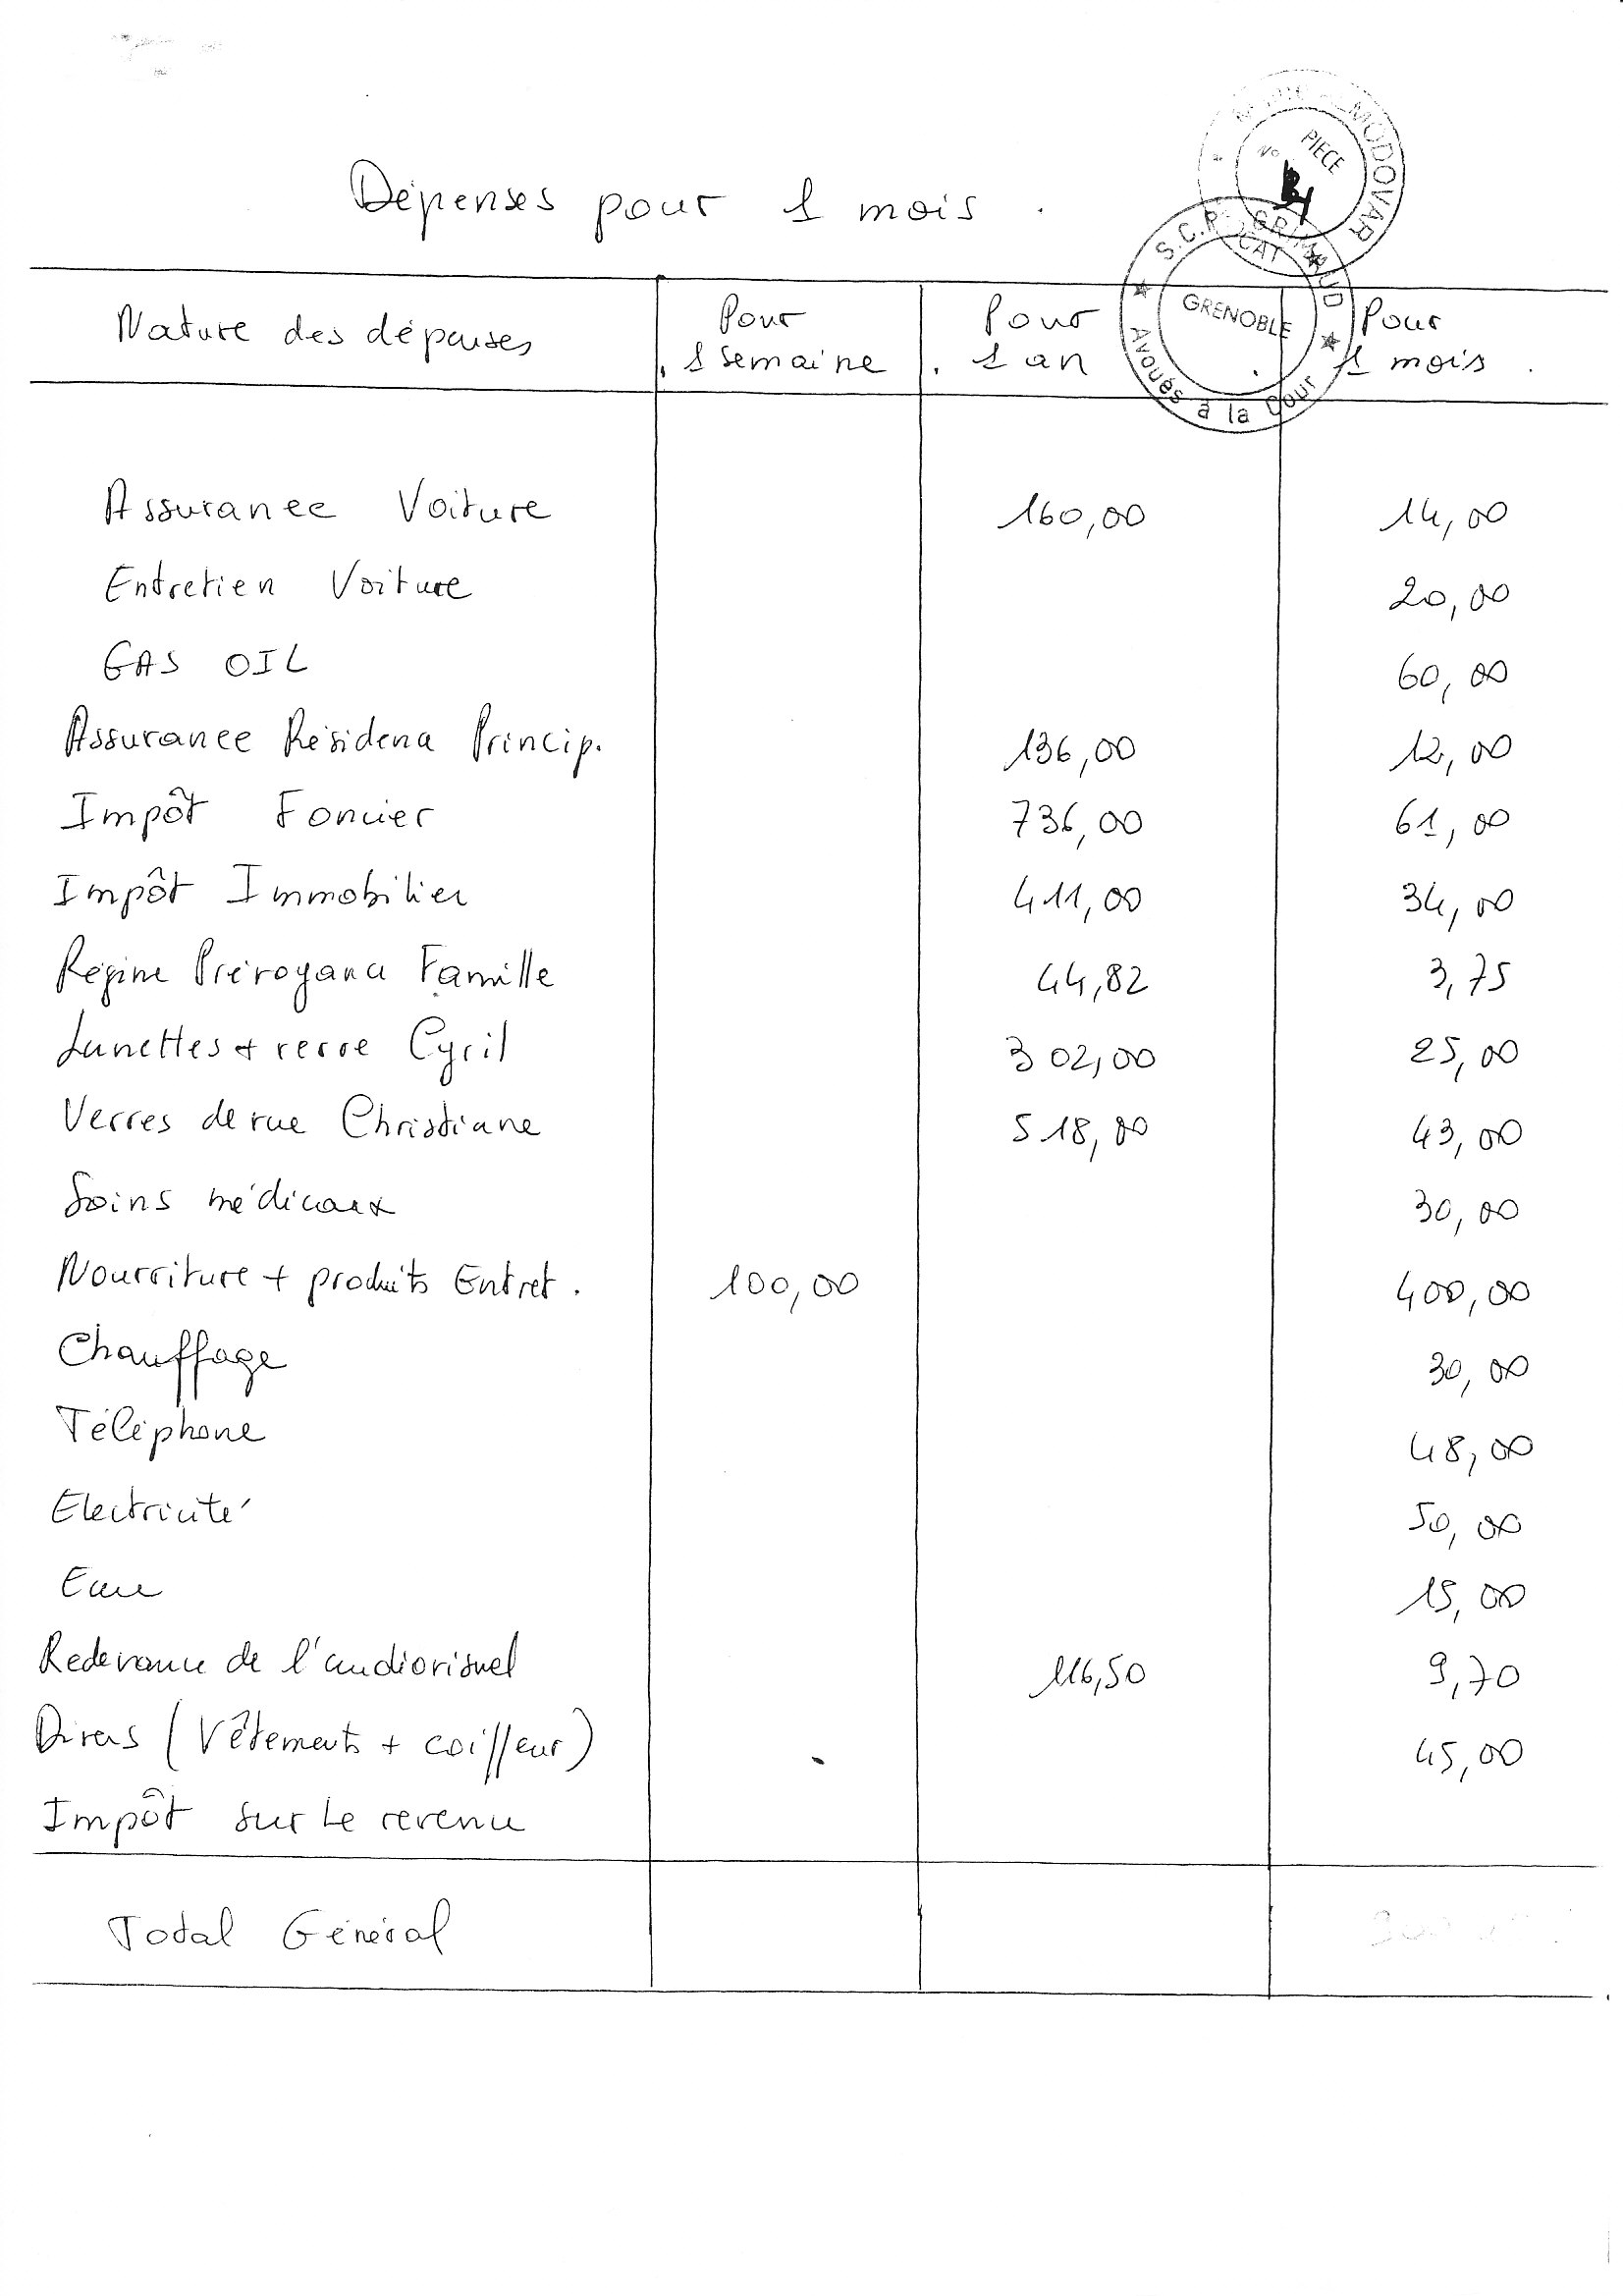 MODOVAR
PIECE
No
S.C.P. GRIMAUD
CAT
GRENOBLE
Avoués à la Cour
Dépenses pour 1 mois.
Nature des dépenses Pour 1 semaine Pour 1 an Pour 1 mois.
Assurance Voiture 160,00 14,00
Entretien Voiture 20,00
GAS OIL 60,00
Assurance Résidence Princip. 136,00 12,00
Impôt Foncier 736,00 61,00
Impôt Immobilier 411,00 34,00
Régime Prévoyance Famille 44,82 3,75
Lunettes + verre Cyril 302,00 25,00
Verres de vue Christiane 518,00 43,00
Soins médicaux 30,00
Nourriture + produits Entret. 100,00 400,00
Chauffage 30,00
Téléphone 48,00
Electricité 50,00
Eau 15,00
Redevance de l'audiovisuel 116,50 9,70
Divers (Vêtements + coiffeur) 45,00
Impôt sur le revenu
Total Général